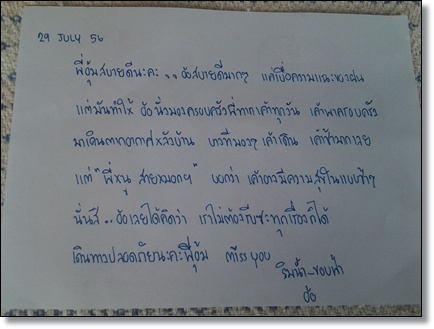 29 JULY 56
พี่อุ้มสบายดีนะคะ .. อ้อสบายดีมากๆ แค่เบื่อความแฉะของฝน
แต่มันทำให้ อ้อนั่งมองครอบครัวพี่ทากเค้าทุกวัน เค้าพาครอบครัว
มาเดินตากอากาศหลังบ้าน บางทีมองๆเค้าเดิน เค้าช้ามากเลย
แต่ "พี่หนู สายหมอกฯ" บอกว่า เค้าอาจมีความสุขในแบบช้าๆ
นั่นสิ .. อ้อเลยได้คิดว่า เราไม่ต้องรีบซะทุกเรื่องก็ได้
เดินทางปลอดภัยนะคะพี่อุ้ม miss you
ริมน้ำ_ขอบฟ้า
อ้อ